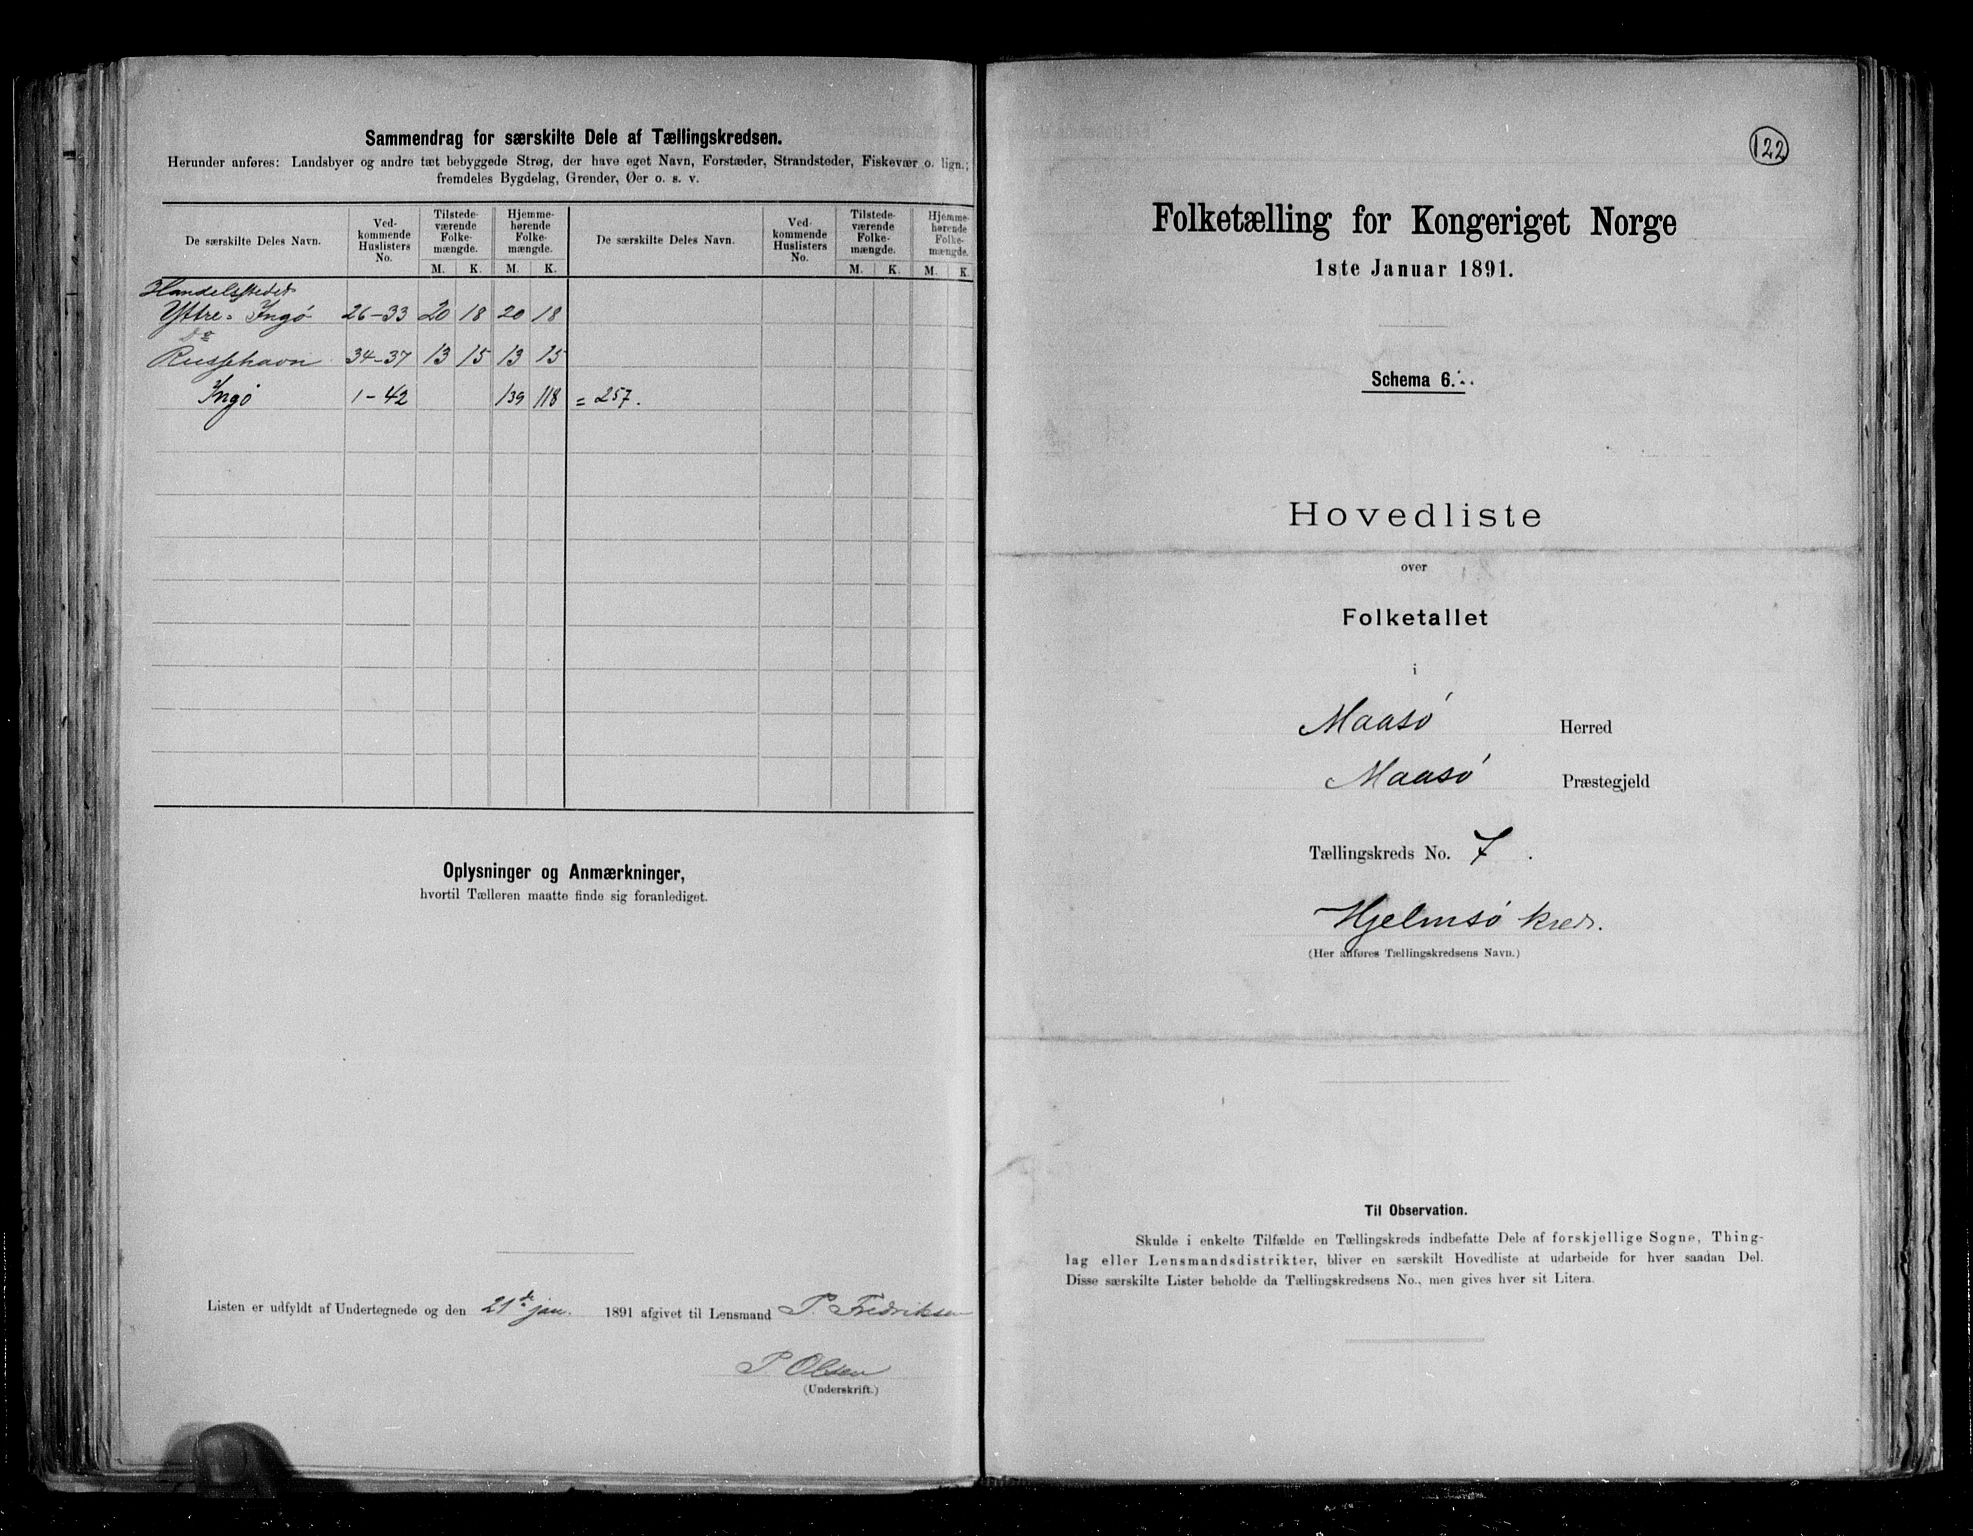 Sammendrag for særskilte Dele af Tællingskredsen.
Herunder anføres: Landsbyer og andre tæt bebyggede Strøg, der have eget Navn, Forstæder, Strandsteder, Fiskevær o. lign.;
fremdeles Bygdelag, Grender, Øer o. s. v.
De særskilte Deles Navn. Ved-kommende Huslisters No. Tilstede-værende Folke-mængde. Hjemme-hørende Folke-mængde. De særskilte Deles Navn. Ved-kommende Huslisters No. Tilstede-værende Folke-mængde. Hjemme-hørende Folke-mængde.
M. K. M. K. M. K. M. K.
Handelsstedet
Yttre-Ingø 26-33 20 18 20 18
do
Russehavn 34-37 13 15 13 15
Ingø 1-42 139 118 = 257.
Oplysninger og Anmærkninger,
hvortil Tælleren maatte finde sig foranlediget.
Listen er udfyldt af Undertegnede og den 21de jan. 1891 afgivet til Lensmand P. Fredriksen
P Olsen
(Underskrift.)
122
Folketælling for Kongeriget Norge
1ste Januar 1891.
Schema 6.
Hovedliste
over
Folketallet
i
Maasø Herred
Maasø Præstegjeld
Tællingskreds No. 7.
Hjelmsø kreds.
(Her anføres Tællingskredsens Navn.)
Til Observation.
Skulde i enkelte Tilfælde en Tællingskreds indbefatte Dele af forskjellige Sogne, Thing-
lag eller Lensmandsdistrikter, bliver en særskilt Hovedliste at udarbeide for hver saadan Del.
Disse særskilte Lister beholde da Tællingskredsens No., men gives hver sit Litera.